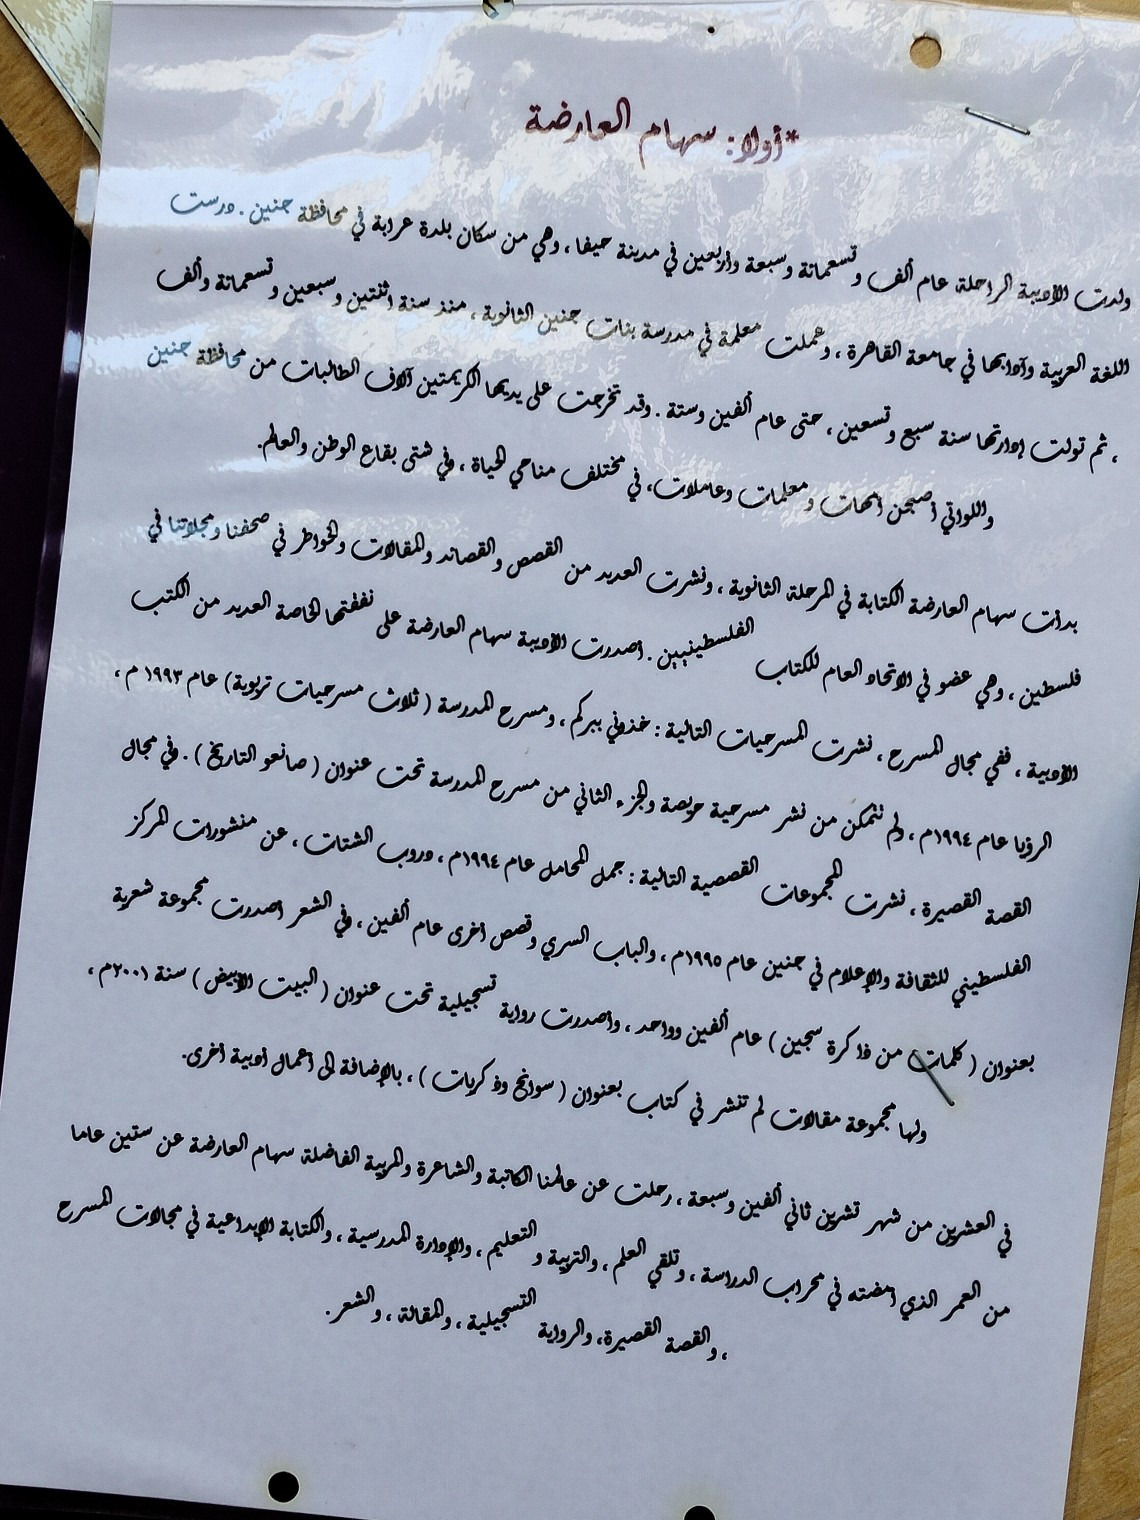 *أولا: سهام العارضة
ولدت الأديبة الراحلة عام ألف وتسعمائة وسبعة وأربعين في مدينة حيفا ، وهي من سكان بلدة عرابة في محافظة جنين . درست
اللغة العربية وآدابها في جامعة القاهرة ، وعملت معلمة في مدرسة بنات جنين الثانوية ، منذ سنة اثنتين وسبعين وتسعمائة وألف
، ثم تولت إدارتها سنة سبع وتسعين ، حتى عام ألفين وستة . وقد تخرجت على يديها الكريمتين آلاف الطالبات من محافظة جنين
واللواتي أصبحن أمهات ومعلمات وعاملات، في مختلف مناحي الحياة ، وفي شتى بقاع الوطن والعالم.
بدأت سهام العارضة الكتابة في المرحلة الثانوية ، ونشرت العديد من القصص والقصائد والمقالات والخواطر في صحفنا ومجلاتنا في
فلسطين ، وهي عضو في الاتحاد العام للكتاب الفلسطينيين . أصدرت الأديبة سهام العارضة على نفقتها الخاصة العديد من الكتب
الأدبية ، ففي مجال المسرح ، نشرت المسرحيات التالية : خذوني ببركم ، ومسرح المدرسة ( ثلاث مسرحيات تربوية) عام ١٩٩٣ م ،
الرؤيا عام ١٩٩٤م ، ولم تتمكن من نشر مسرحية حريصة والجزء الثاني من مسرح المدرسة تحت عنوان ( صانعو التاريخ ) . وفي مجال
القصة القصيرة ، نشرت المجموعات القصصية التالية : جمل المحامل عام ١٩٩٤م ، دروب الشتات ، عن منشورات المركز
الفلسطيني للثقافة والإعلام في جنين عام ١٩٩٥م ، والباب السري وقصص أخرى عام ألفين ، وفي الشعر أصدرت مجموعة شعرية
بعنوان ( كلمات من ذاكرة سجين ) عام ألفين وواحد ، وأصدرت رواية تسجيلية تحت عنوان ( البيت الأبيض ) سنة ٢٠٠١م ،
ولها مجموعة مقالات لم تنشر في كتاب بعنوان ( سوانح وذكريات ) ، بالإضافة إلى أعمال أدبية أخرى.
في العشرين من شهر تشرين ثاني ألفين وسبعة ، رحلت عن عالمنا الكاتبة والشاعرة والمربية الفاضلة سهام العارضة عن ستين عاما
من العمر الذي أمضته في محراب الدراسة ، وتلقي العلم ، والتربية والتعليم ، والإدارة المدرسية ، والكتابة الإبداعية في مجالات المسرح
، والقصة القصيرة، والرواية التسجيلية ، والمقالة ، والشعر .